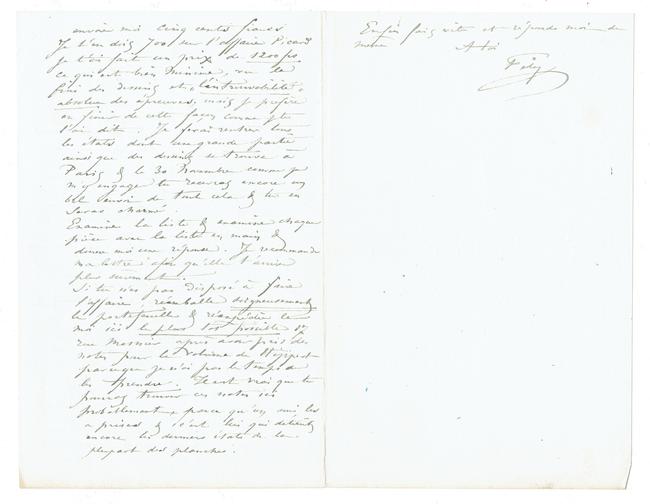 envoie moi cinq cents francs
Je t'en dois 700 sur l'affaire Picard
je t'ai fait un prix de 1200 fs
ce qui est bien minime, vu le
fini des dessins et l'introuvabilité
absolue des épreuves, mais je préfère
en finir de cette façon comme je te
l'ai dit. Je ferai rentrer tous
les états dont une grande partie
ainsi que des dessins se trouve à
Paris & le 30 Novembre comme je
m'y engage tu recevras encore un
bel envoi de tout cela & tu en
seras charmé.
Examine la liste & examine chaque
pièce avec la liste en mains &
donne moi une réponse. Je recommande
ma lettre afin qu'elle t'arrive
plus sûrement.
Si tu n'es pas disposé à faire
l'affaire, remballe soigneusement
le portefeuille & réexpédie le
moi ici le plus tôt possible
rue après avoir pris des
notes pour le volume de
parceque je n'ai pas le temps de
les prendre. Il est vrai que tu
pourras trouver ces notes ici
probablement, parce qu'on me les
a prises & c'est lui qui détient
encore les derniers états de la
plupart des planches.
Enfin fais vite et réponds moi de
même
A toi
Fély